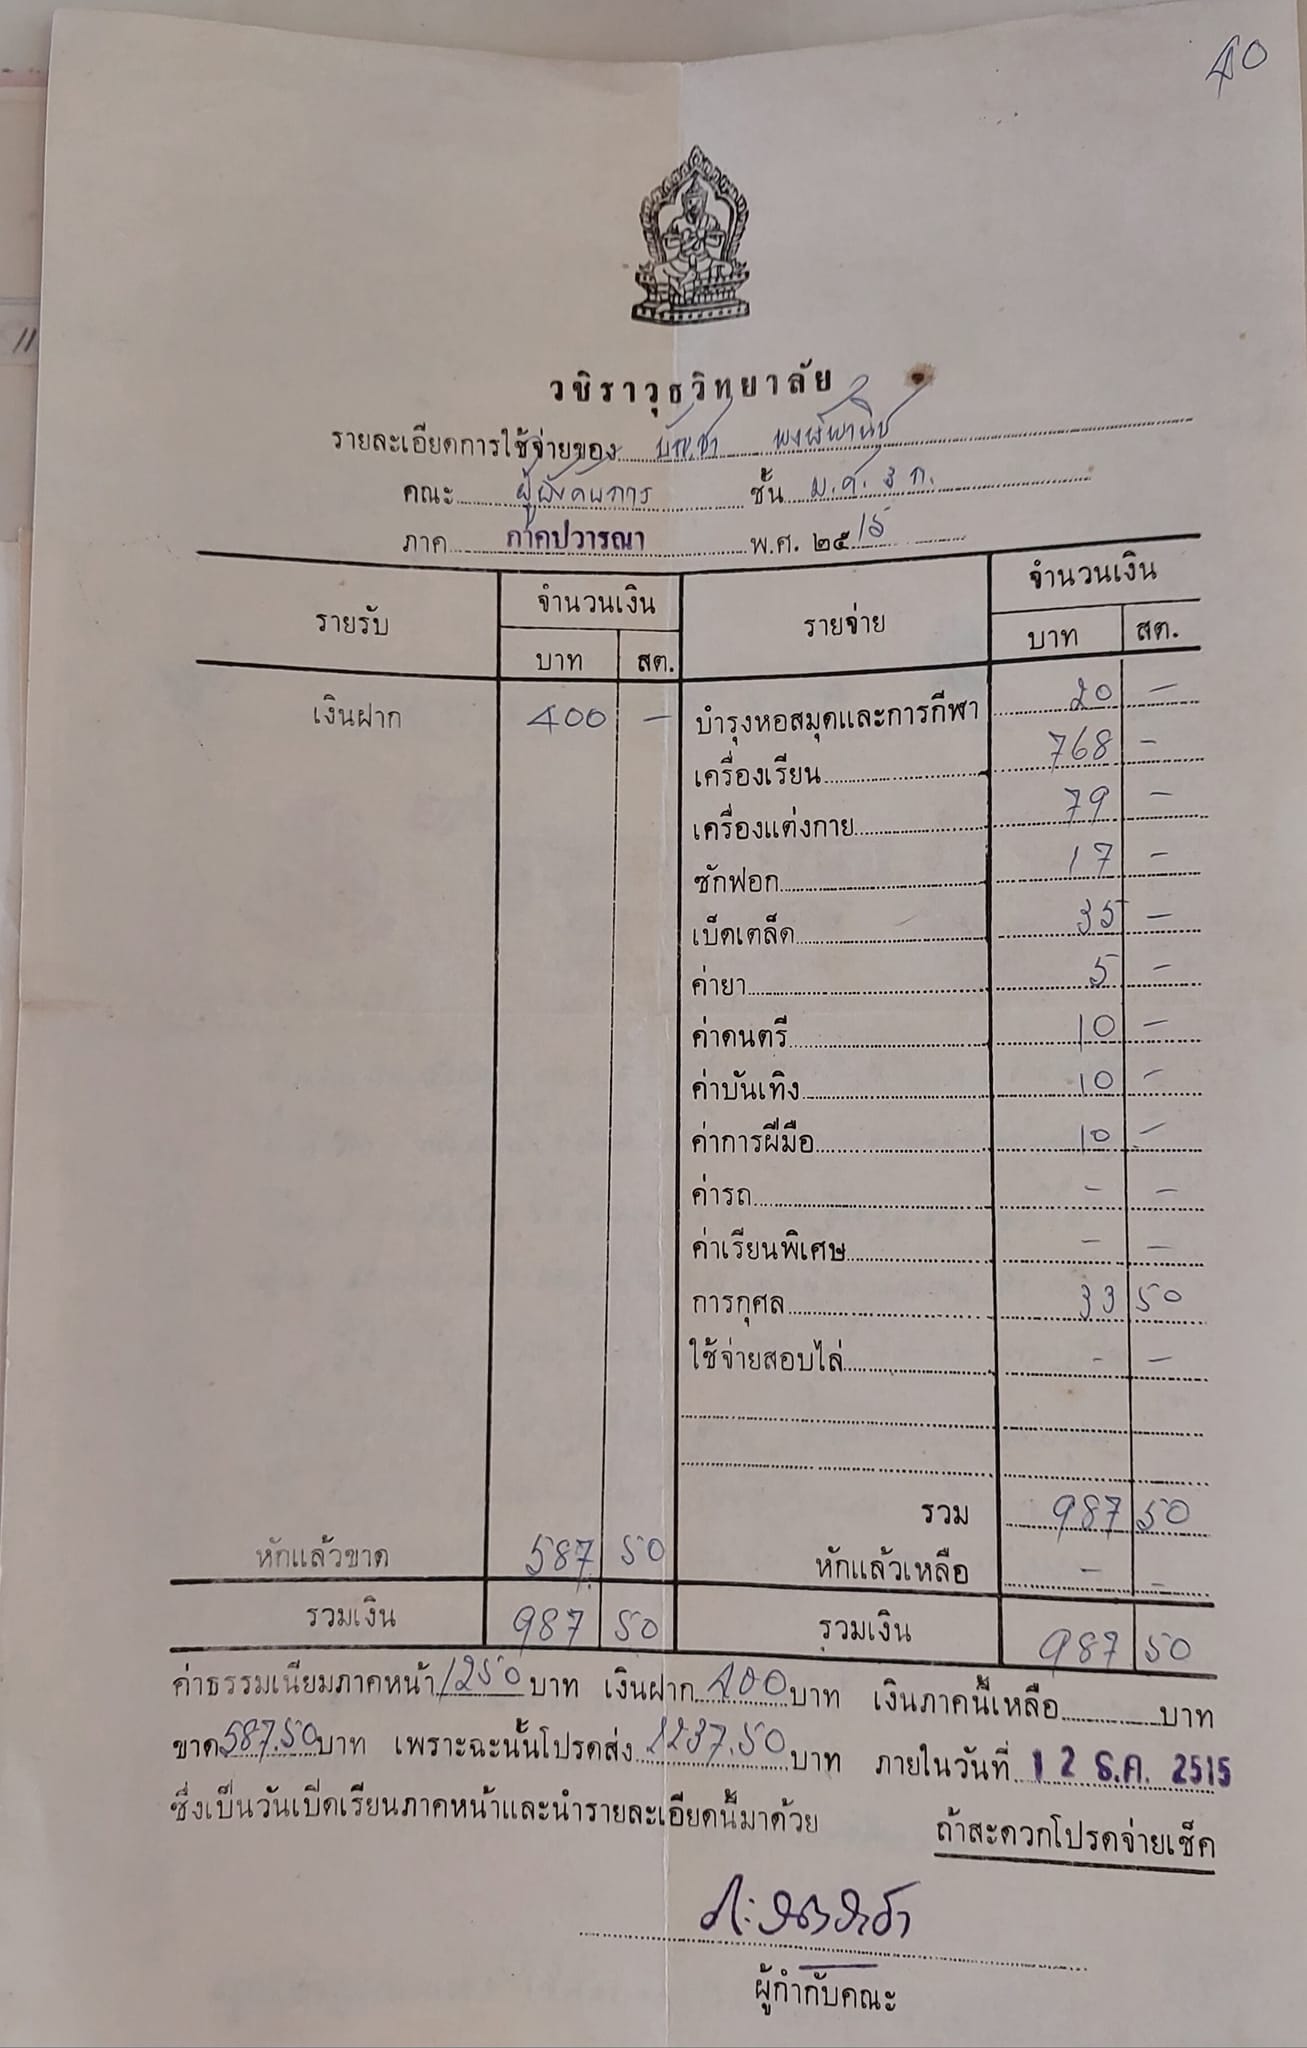 40
วชิราวุธวิทยาลัย
รายละเอียดการใช้จ่ายของ บัญชา พงษ์พานิช
คณะ ผู้บังคับการ ชั้น ม.ศ. 3 ก.
ภาค ภาคปวารณา พ.ศ. ๒๕15
รายรับ จำนวนเงิน รายจ่าย จำนวนเงิน
บาท สต. บาท สต.
เงินฝาก 400 – บำรุงหอสมุดและการกีฬา 20 –
เครื่องเรียน 768 –
เครื่องแต่งกาย 79 –
ซักฟอก 17 –
เบ็ดเตล็ด 35 –
ค่ายา 5 –
ค่าดนตรี 10 –
ค่าบันเทิง 10 –
ค่าการฝีมือ 10 –
ค่ารถ – –
ค่าเรียนพิเศษ – –
การกุศล 33 50
ใช้จ่ายสอบไล่ – –
รวม 987 50
หักแล้วขาด 587 50 หักแล้วเหลือ – –
รวมเงิน 987 50 รวมเงิน 987 50
ค่าธรรมเนียมภาคหน้า 1250 บาท เงินฝาก 400 บาท เงินภาคนี้เหลือ บาท
ขาด 587.50 บาท เพราะฉะนั้นโปรดส่ง 2237.50 บาท ภายในวันที่ 12 ธ.ค. 2515
ซึ่งเป็นวันเปิดเรียนภาคหน้าและนำรายละเอียดนี้มาด้วย ถ้าสะดวกโปรดจ่ายเช็ค
ผู้กำกับคณะ